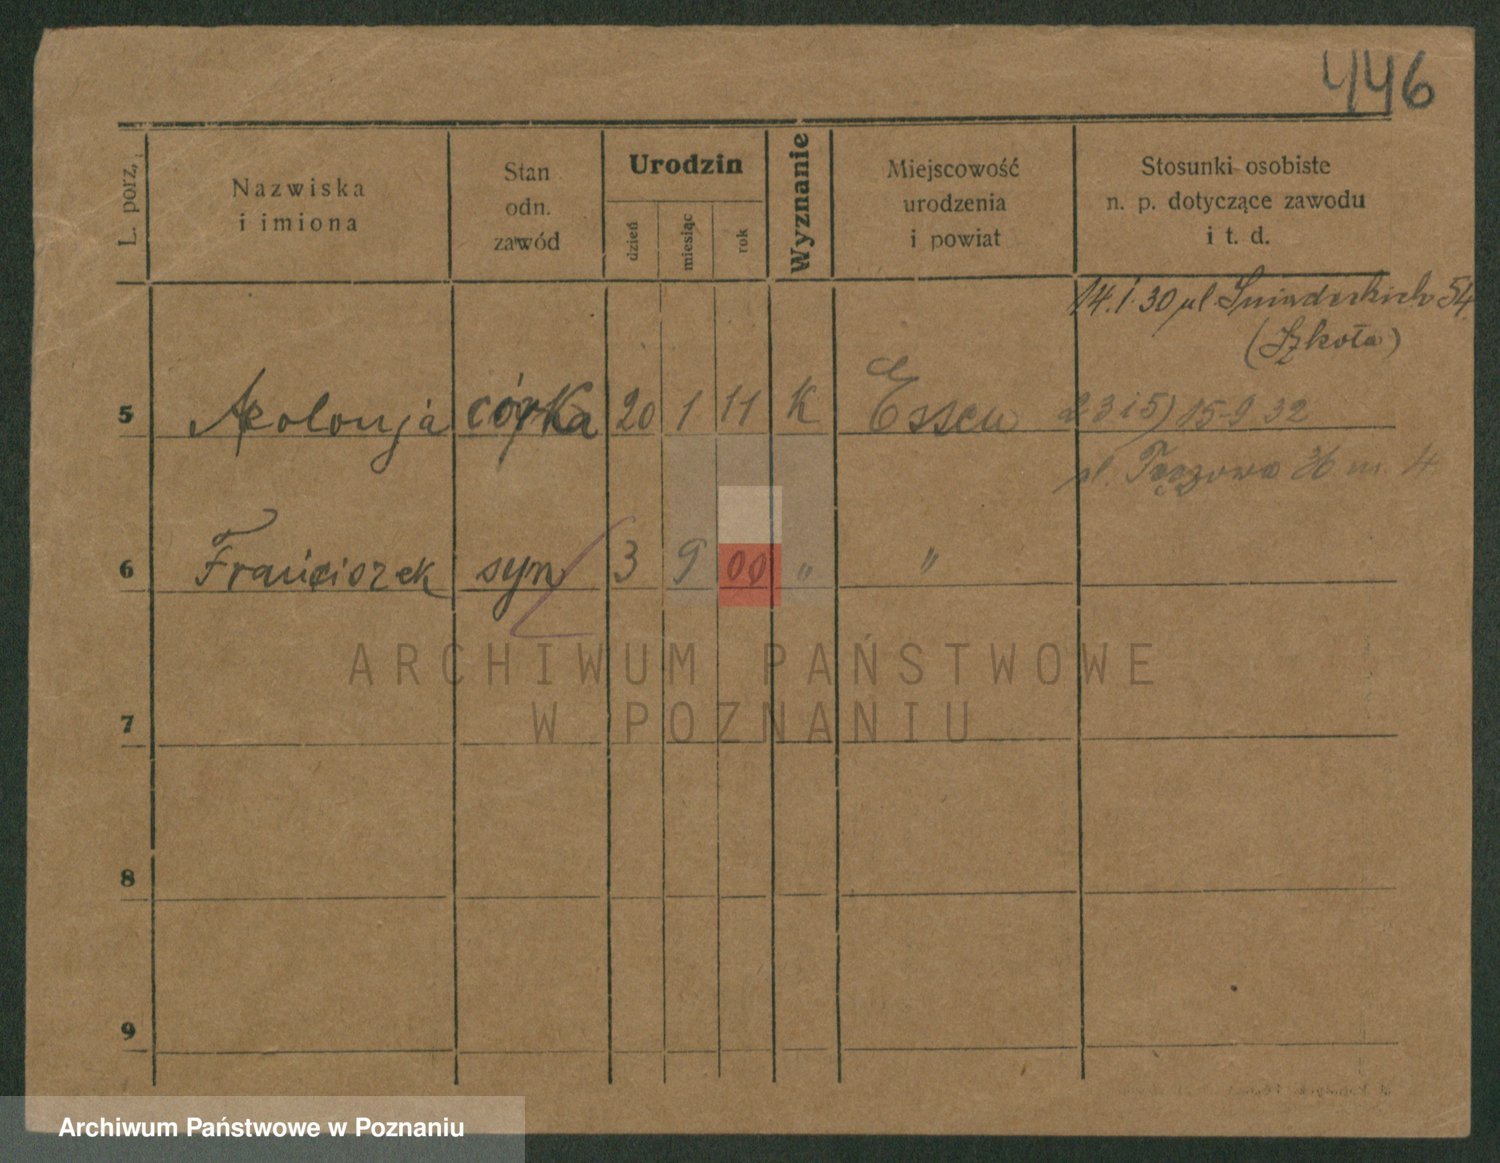 446
L. porz.
Nazwiska
i imiona
Stan
odn.
zawód
Urodzin
dzień
miesiąc
rok
Wyznanie
Miejscowość
urodzenia
i powiat
Stosunki osobiste
n. p. dotyczące zawodu
i t. d.
14.1.30 ul. Śniadeckich 54
(Szkoła)
5 Apolonja córka 20 1 11 K Essen 2 3 i 5) 15-9 32
ul. Tęczowa 36 m. 4
6 Franciszek syn 3 9 00 " "
7
8
9
ARCHIWUM PAŃSTWOWE
W POZNANIU
Archiwum Państwowe w Poznaniu